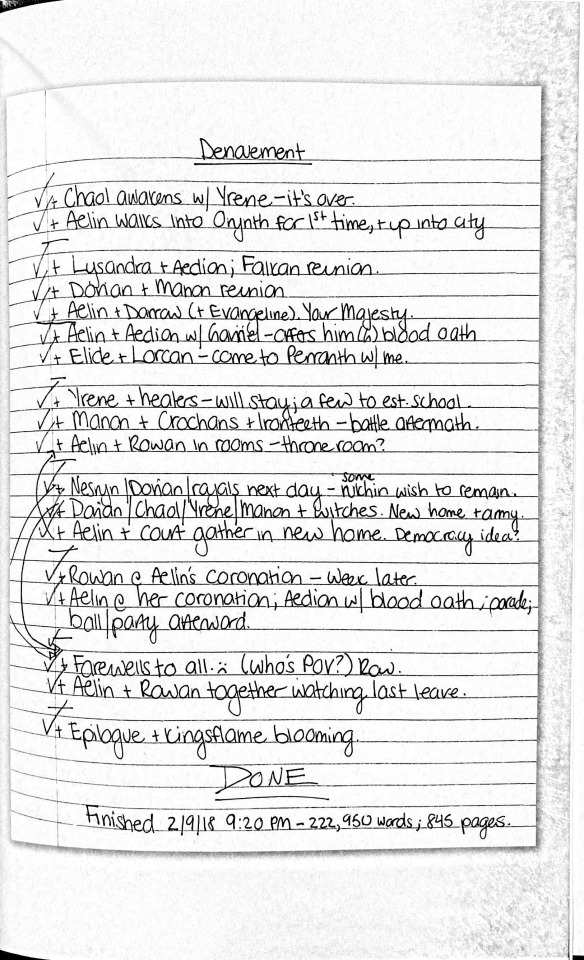 Denauement
✓ + Chaol awakens w/ Yrene - it's over.
✓ + Aelin walks into Orynth for 1st time, + up into city
✓ + Lysandra + Aedion; Falkan reunion.
✓ + Dorian + Manon reunion
✓ + Aelin + Darrow (+ Evangeline). Your Majesty.
✓ + Aelin + Aedion w/ Gavriel - offers him (G) blood oath
✓ + Elide + Lorcan - come to Perranth w/ me.
✓ + Yrene + healers - will stay; a few to est. school.
✓ + Manon + Crochans + Ironteeth - battle aftermath.
✓ + Aelin + Rowan in rooms - throne room?
✓ + Nesryn | Dorian | royals next day - some rukhin wish to remain.
✓ + Dorian | Chaol | Yrene | Manon + witches. New home + army.
✓ + Aelin + court gather in new home. Democracy idea?
✓ + Rowan @ Aelin's coronation - week later.
✓ + Aelin @ her coronation; Aedion w/ blood oath; parade;
ball/party afterward.
✓ + Farewells to all. :( (who's POV?) Row.
✓ + Aelin + Rowan together watching last leave.
✓ + Epilogue + Kingsflame blooming.
DONE
Finished 2/9/18 9:20 PM - 222,950 words; 845 pages.